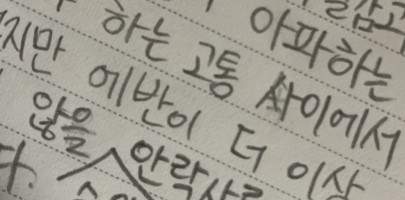 아파하는
하는 고통 사이에서
지만 에반이 더 이상
않을 안락사